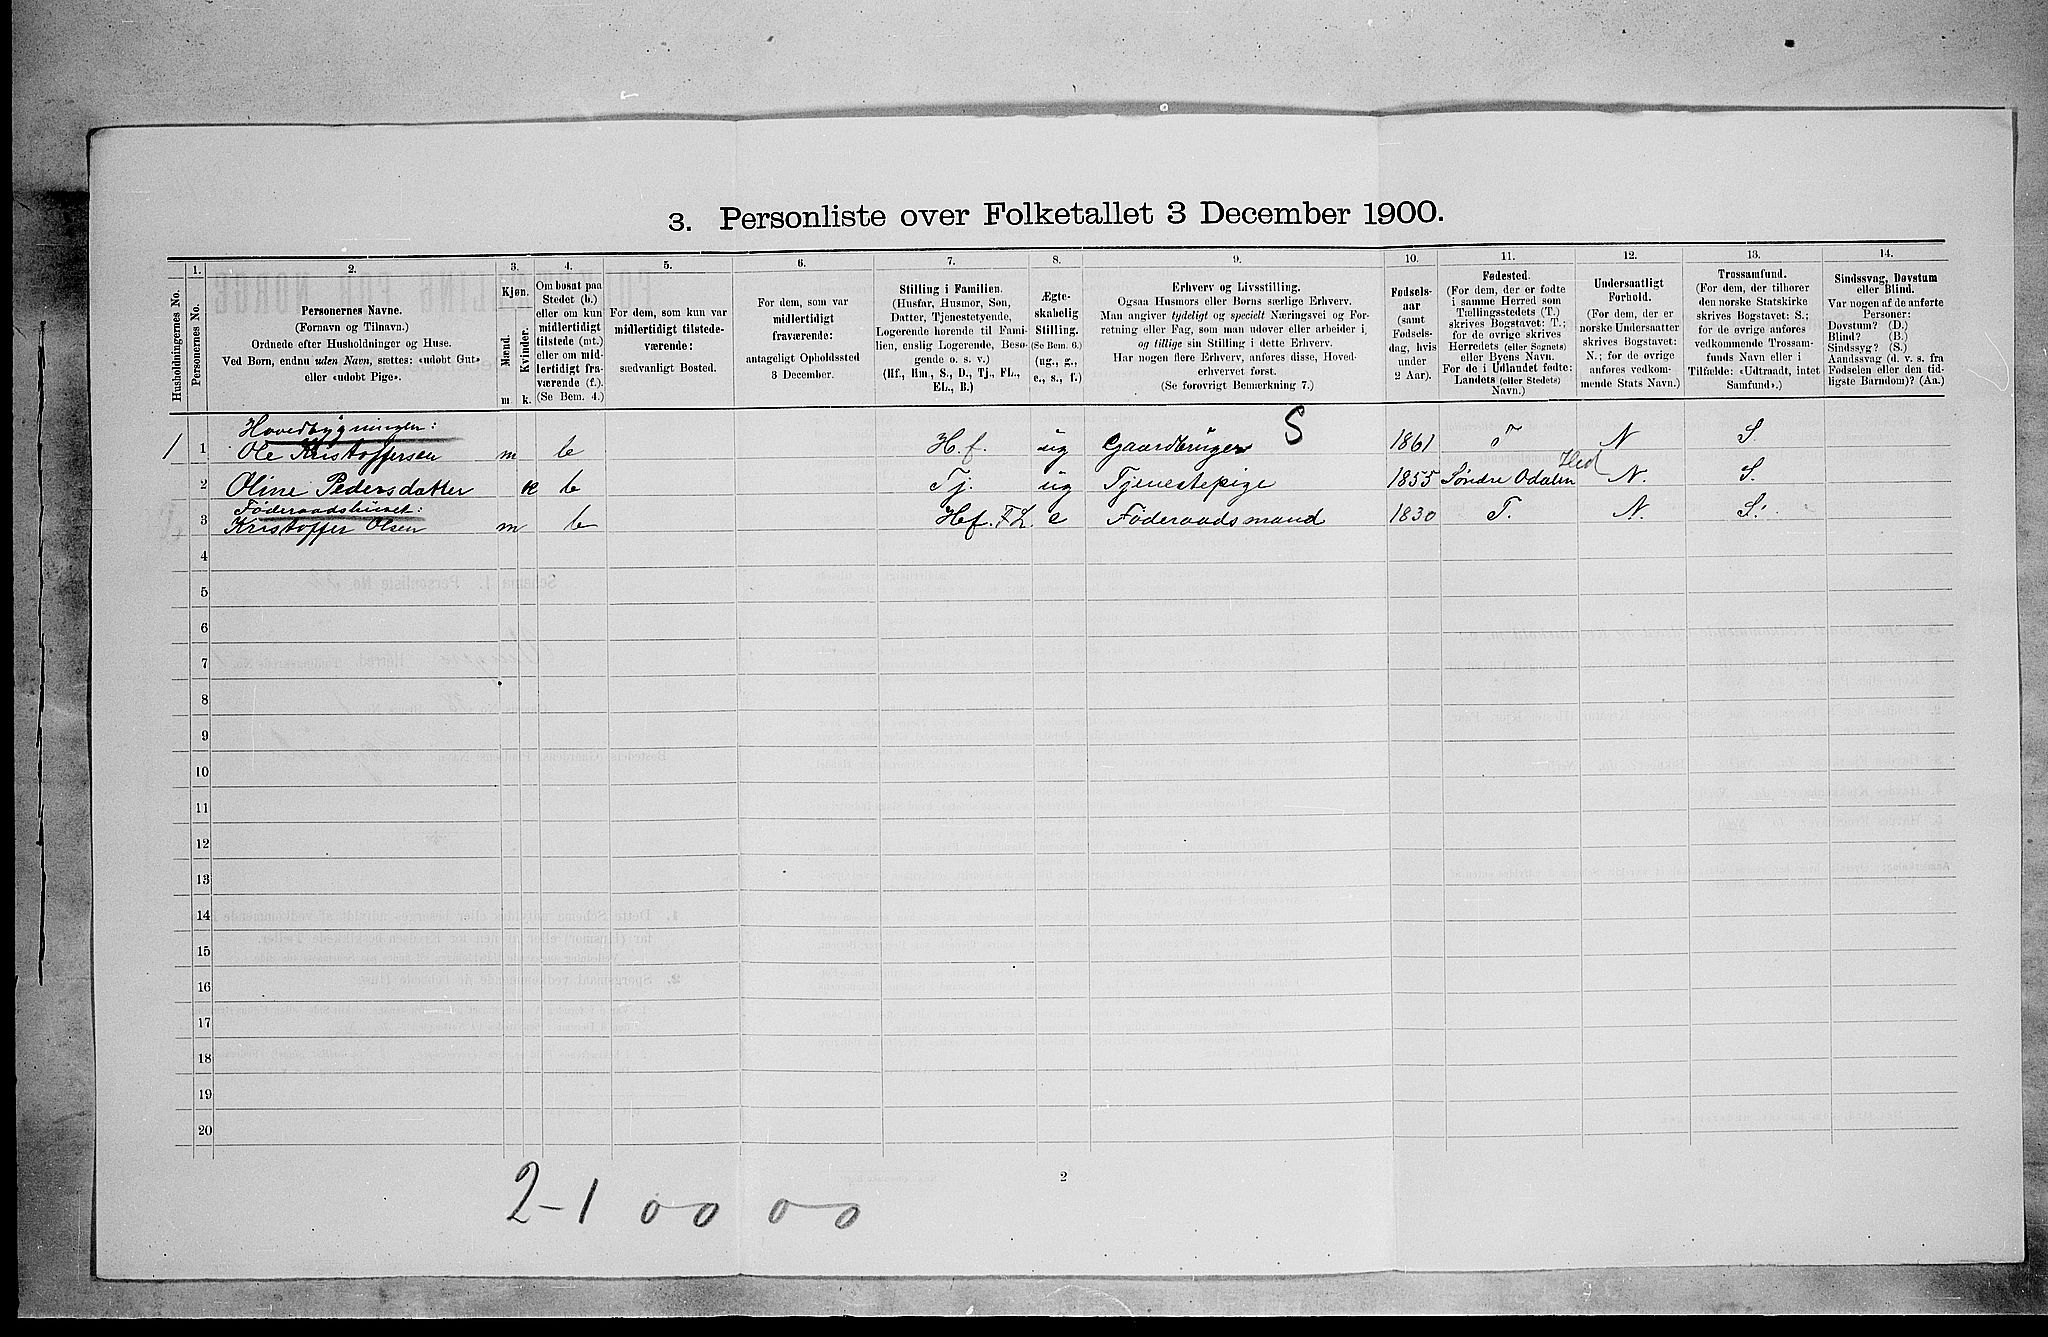 3. Personliste over Folketallet 3 December 1900.
Husholdningernes No.
1.
Personernes No.
2.
Personernes Navne.
(Fornavn og Tilnavn.)
Ordnede efter Husholdninger og Huse.
Ved Børn, endnu uden Navn, sættes: «udøbt Gut»
eller «udøbt Pige».
3.
Kjøn.
Mænd.
Kvinder.
m. k.
4.
Om bosat paa
Stedet (b.)
eller om kun
midlertidigt
tilstede (mt.)
eller om mid-
lertidigt fra-
værende (f.).
(Se Bem. 4.)
5.
For dem, som kun var
midlertidigt tilstede-
værende:
sædvanligt Bosted.
6.
For dem, som var
midlertidigt
fraværende:
antageligt Opholdssted
3 December.
7.
Stilling i Familien.
(Husfar, Husmor, Søn,
Datter, Tjenestetyende,
Logerende hørende til Fami-
lien, enslig Logerende, Besø-
gende o. s. v.)
(Hf., Hm., S., D., Tj., FL.,
EL., B.)
8.
Ægte-
skabelig
Stilling.
(Se Bem. 6.)
(ug., g.,
e., s., f.)
9.
Erhverv og Livsstilling.
Ogsaa Husmors eller Børns særlige Erhverv.
Man angiver tydeligt og specielt Næringsvei og For-
retning eller Fag, som man udøver eller arbeider i,
og tillige sin Stilling i dette Erhverv.
Har nogen flere Erhverv, anføres disse, Hoved-
erhvervet først.
(Se forøvrigt Bemerkning 7.)
10.
Fødsels-
aar
(samt
Fødsels-
dag, hvis
under
2 Aar).
11.
Fødested.
(For dem, der er fødte
i samme Herred som
Tællingsstedets (T.)
skrives Bogstavet: T.;
for de øvrige skrives
Herredets (eller Sognets)
eller Byens Navn.
For de i Udlandet fødte:
Landets (eller Stedets)
Navn.)
12.
Undersaatligt
Forhold.
(For dem, der er
norske Undersaatter
skrives Bogstavet:
N.; for de øvrige
anføres vedkom-
mende Stats Navn.)
13.
Trossamfund.
(For dem, der tilhører
den norske Statskirke
skrives Bogstavet: S.;
for de øvrige anføres
vedkommende Trossam-
funds Navn eller i
Tilfælde: «Udtraadt, intet
Samfund».)
14.
Sindssvag, Døvstum
eller Blind.
Var nogen af de anførte
Personer:
Døvstum? (D.)
Blind? (B.)
Sindssyg? (S.)
Aandssvag (d. v. s. fra
Fødselen eller den tid-
ligste Barndom)? (Aa.)
Hovedbygningen: S
1 1 Ole Kristoffersen m b H.f. ug Gaardbruger 1861 T N S.
2 Oline Pedersdatter k b Tj. ug Tjenestepige 1855 Søndre Odalen Hed N. S.
Føderaadshuset:
3 Kristoffer Olsen m b Hf. FL. e Føderaadsmand 1830 T. N. S.
4
5
6
7
8
9
10
11
12
13
14
15
16
17
18
19
20
2
2-1 00 00